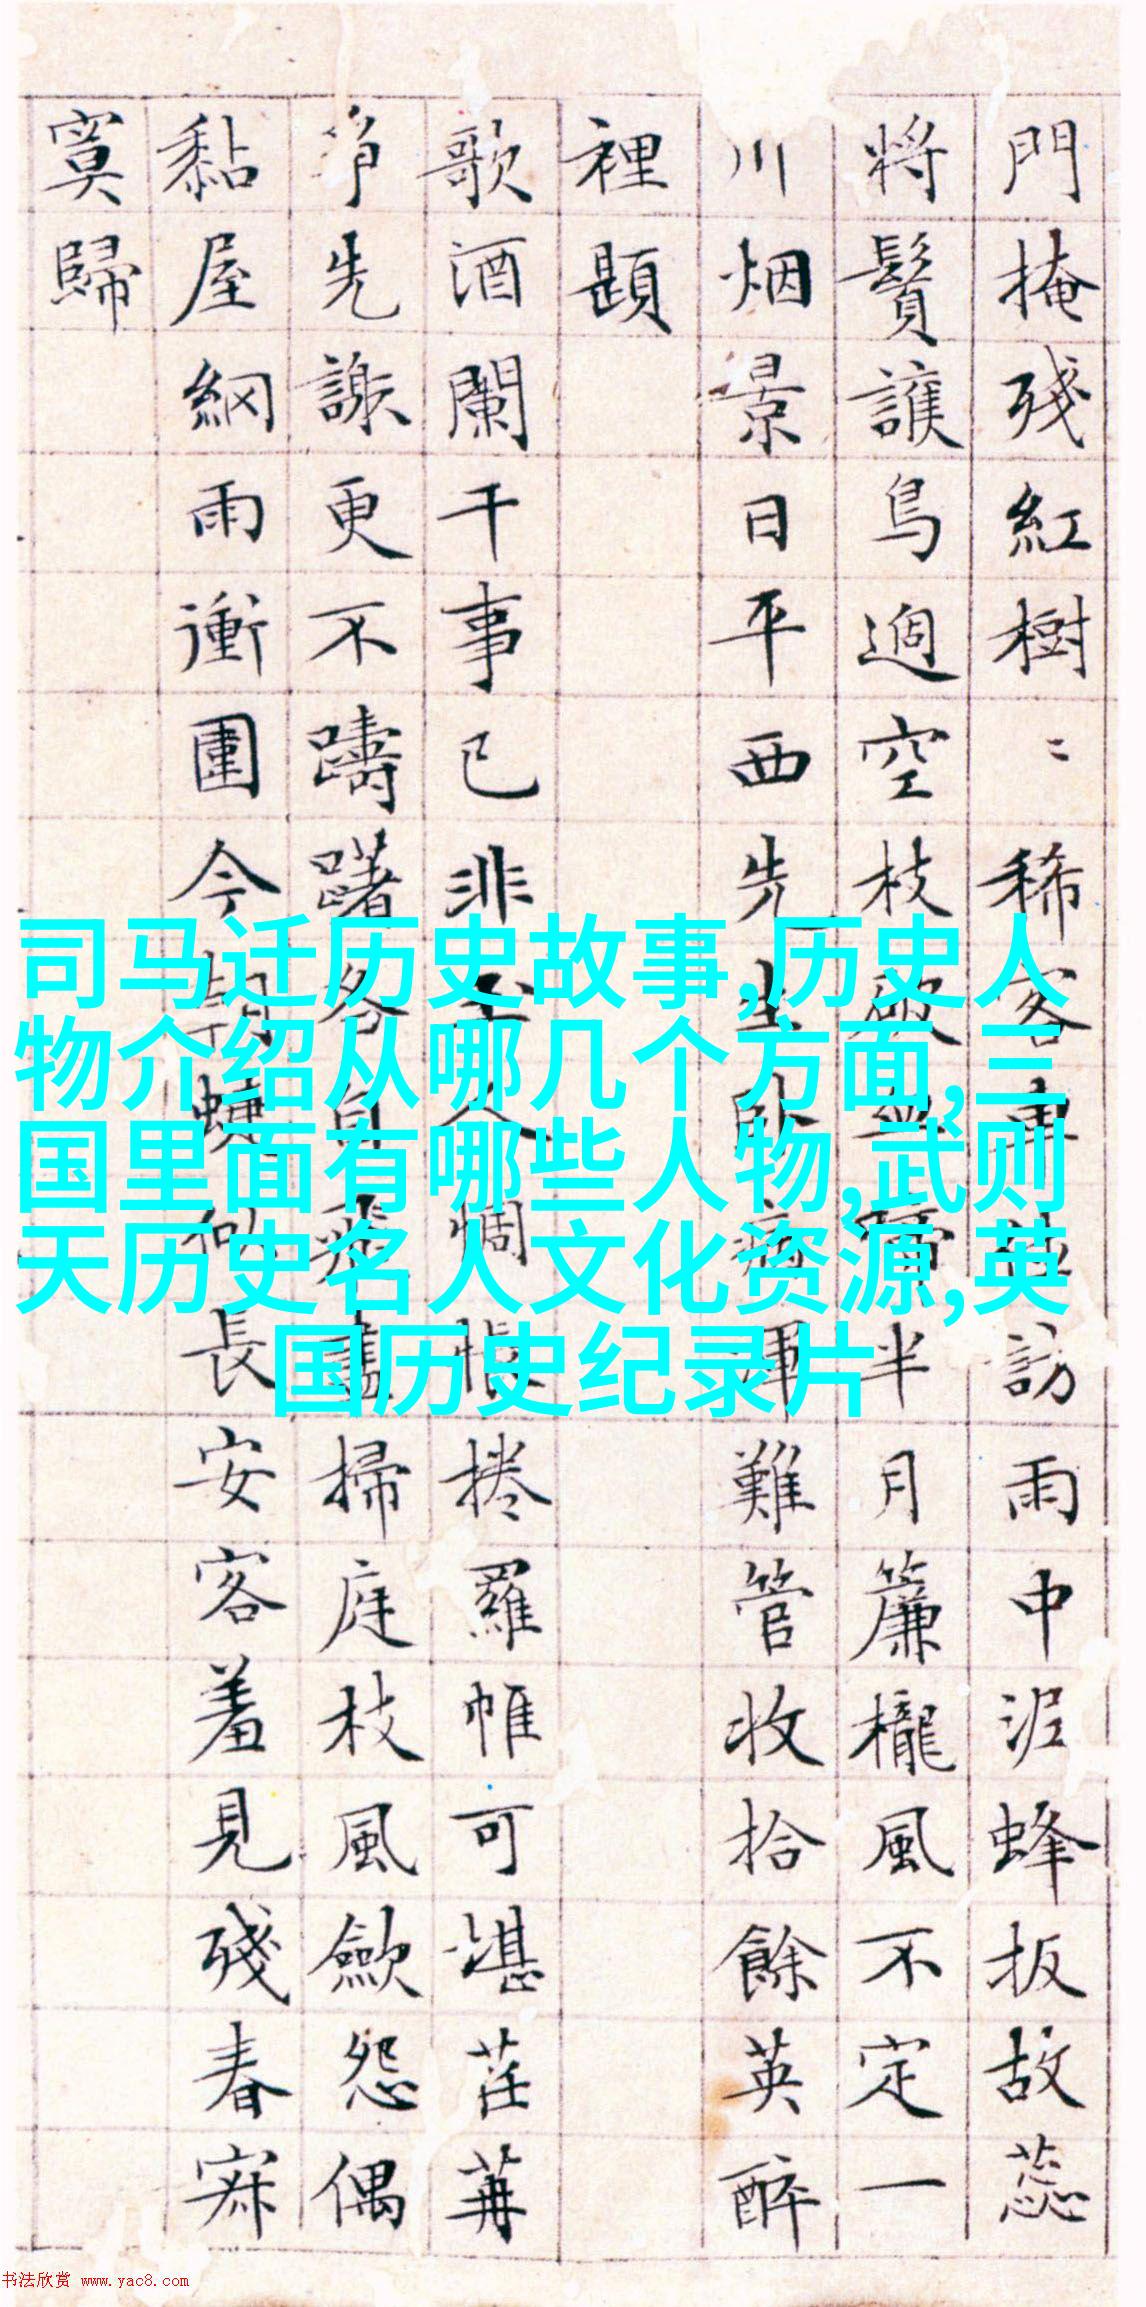 門掩殘紅樹〻稀客車訪雨中泥蜂扳故蕊
將鬚護鳥過空枝啼半月簾櫳風不定一
川烟景日平西先生卧病渾難管收拾餘英醉
裡題
歌酒闌干事已非玉人惆悵捲羅帷可堪茌苒
爭先謝更不躊躇各自飛掃庭枝風歛怨偶
黏屋網雨衝圍今朝似長安客羞見殘春寂
寞歸
司马迁历史故事,历史人
物介绍从哪几个方面,三
国里面有哪些人物,武则
天历史名人文化资源,英
国历史纪录片
书法欣赏 www.yac8.com